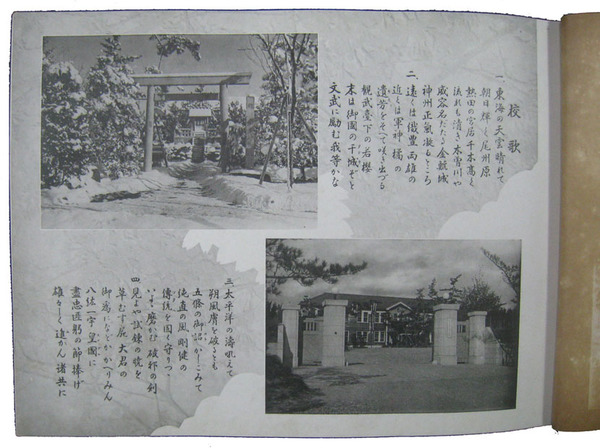 校歌
一、東海の天雲晴れて
朝日輝く尾州原
熱田の宮居千木高く
流れも清き木曽川や
威容名だたる金鯱城
神州正氣凝るところ
二、遠くは織豊両雄の
近くは軍神橘の
遺芳をそへて咲き出づる
観武臺下の若櫻
末は御國の干城ぞと
文武に励む我等かな
三、太平洋の濤吼えて
朔風膚を破るとも
五條の御詔かしこみて
純直の風剛健の
傳統を固く守りつゝ
いざ磨かむ破邪の剣
四、見よや試錬の機を
草むす屍大君の
御為になどかかへりみん
八紘一宇皇國に
盡忠匪躬の節捧げ
雄々しく進かん諸共に